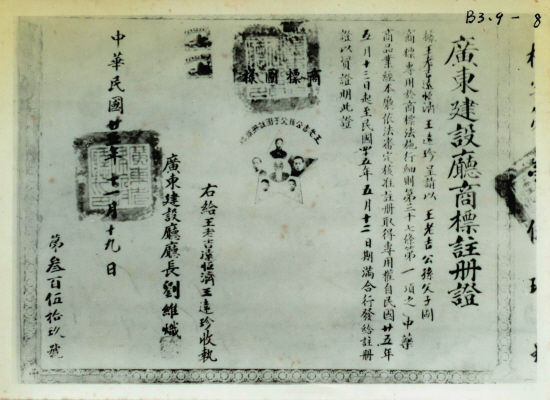 B3.9-8
廣東建設廳商標註冊證
據王老吉遠恒濟王遠珍呈請以王老吉公孫父子圖
商標專用於商標法施行細則第三十七條第一項之中藥
商品業經本廳依法審定核准註冊取得專用權自民國廿五年
五月十三日起至民國卅五年五月十二日期滿合行發給註冊
證以資證明此證
商標圖樣
右給王老吉遠恒濟王遠珍收執
廣東建設廳廳長劉維熾
中華民國廿年十一月十九日
第叁百伍拾玖號